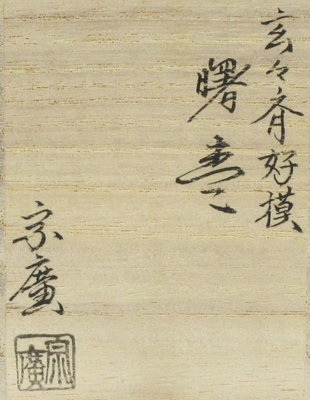 玄々斎好模
曙棗
宗廣
宗廣